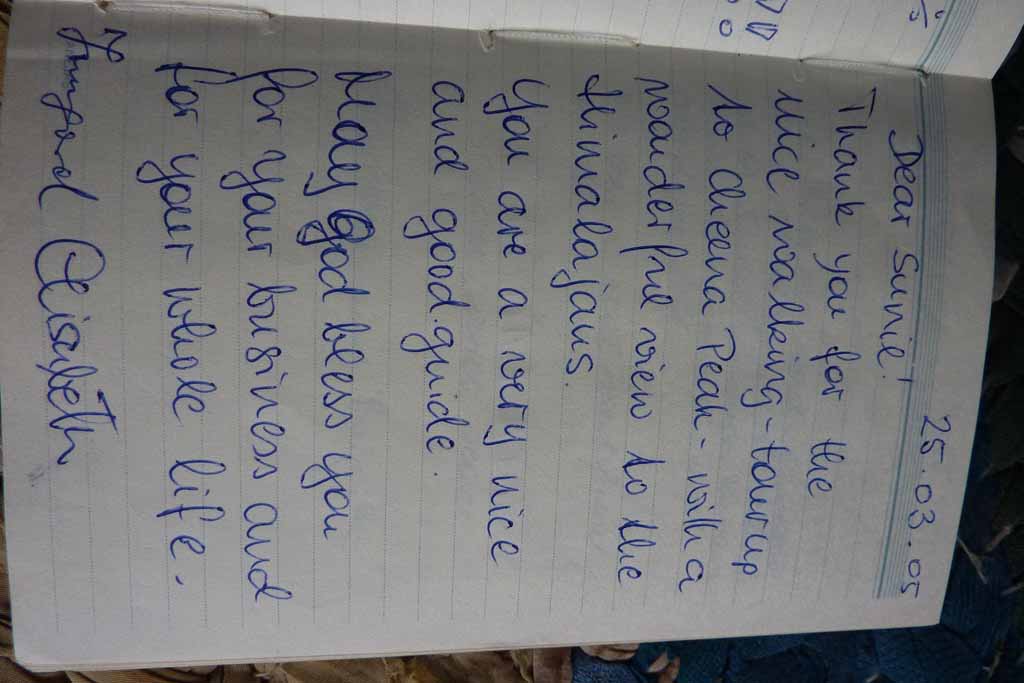 25.03.05
Dear Sunil!
Thank you for the
nice walking-tour up
to Cheena Peak - with a
wonderful view to the
Himalajaus.
You are a very nice
and good guide.
May God bless you
for your business and
for your whole life.
Irmgard Elisabeth